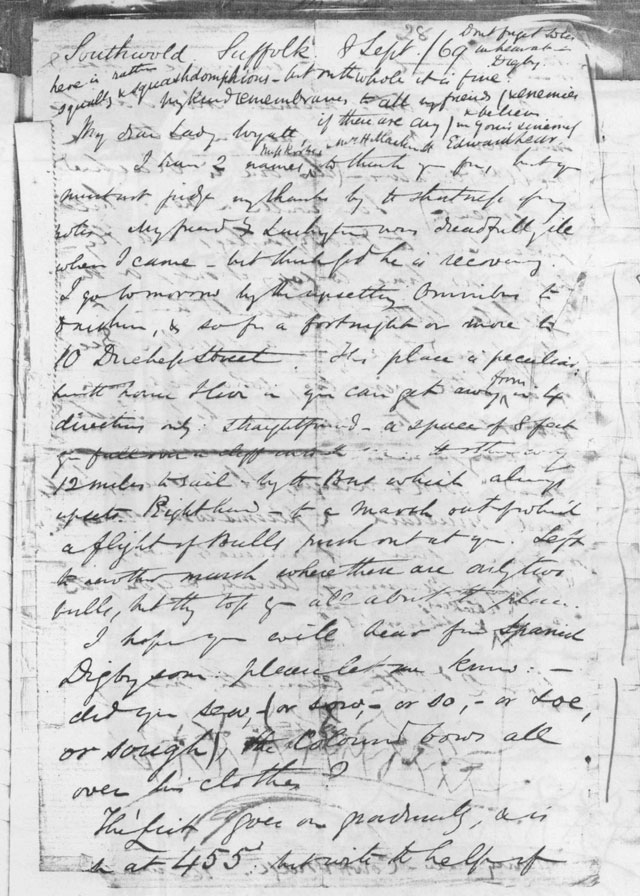 Dont forget to let
me hear about
Digby
Southwold Suffolk. 8 Sept. /69
here is rather
squally & squashdomphious - but on the whole it is fine.
my kind remembrances to all my friends (& enemies
if there are any) & believe
me Yours sincerely
Edward Lear
My dear Lady Wyatt
I have 2 to thank you for, but you
must not judge my thanks by the shortness of my
note. My friend F. Lushington was dreadfully ill
when I came - but thank God he is recovering.
I go tomorrow by the upsetting Omnibus to
& so for a fortnight or more to
10 Duchess Street. This place is peculiar,
you can get away from in 4
directions only: straightforward - a space of 8 feet
you fall over a cliff
12 miles to rail by the Bus which always
upsets. Right hand - to a marsh out of which
a flight of Bulls rush out at you. Left
to another marsh where there are only two
bulls, but they toss you all about the place.
I hope you will hear from
Digby soon: please let me know. -
did you sew, - (or sow, - or so, - or soe,
or sough), the Coloured bows all
over his clothes?
The List goes on gradually, & is
at 455 but with the help of